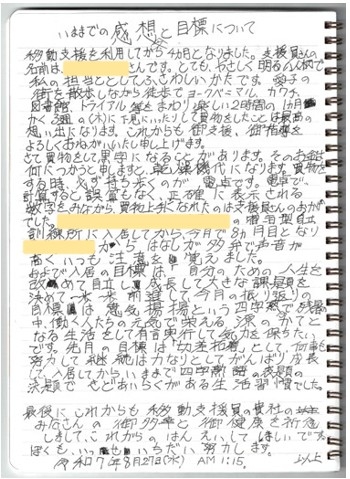 いままでの感想と目標について
移動支援を利用してから4カ月となりました。支援員さんの
名前は さんです。とても、やさしく明るい人柄で
私の担当としてふさわしいかたです。愛子の
街を散歩しながら徒歩でヨークベニマル、カワチ、
図書館、トライアル等をまわり楽しい2時間の1カ月
(木)に 買物をしたことは最高の
思い出になります。これからも御支援、御指導を
よろしくおねがいいたし申し上げます。
さて買物をして黒字になることがあります。そのお金は
何につかうと申しますと、 代になります。買物を
する時、必ず持ち歩くのが電卓です。電卓で、
計算すると誤算もなく、正確に表示される
数字をみながら、買物上手になれたのは支援員さんのおかげ
でした。 の 宅型自立
訓練所に入居してから、今月で8ヵ月目となり
から はなしが多弁で声音が
高くいつも注意を 覚えました。
および入居の目標は「自分のための人生を
改めて自立し、成長して大きな課題を
決めて 前進して今月の振り返りの
目標は 意気揚揚という四字熟で
中、働く人たちの元気で栄える 源のかてと
なる生活として有言実行して気力を保ちたい
です。先月の目標は「 」として何事も
努力して継続は力なりとしてがんばり成長
して、入居してからいままで四字 の表題の
生活習慣でした。
最後にこれからも移動支援員の貴社の
みなさんの御多幸と御健康を祈念
しまして、これからのはんえいしてほしいです。
ぼくも、いっもいだい努力します。
令和7年8月27日(水) AM1:15。 以上